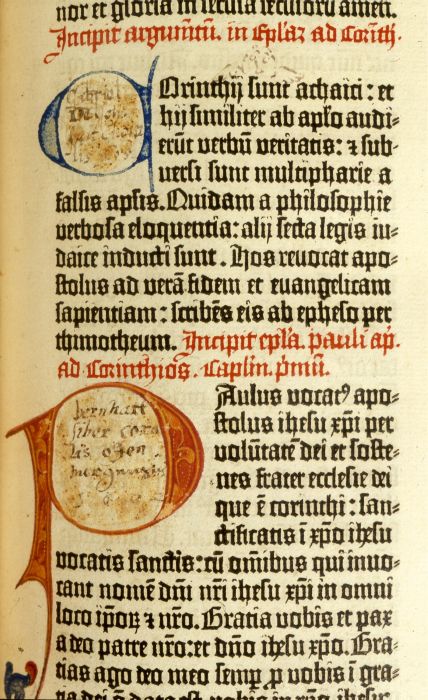 nor et gloria in secula seculorū amen.
Incipit argumētū. in Epl̄az ad Corīth·
COrinthij sunt achaici: et
hij similiter ab apl̄o audi-
erūt verbū veritatis: ⁊ sub-
versi sunt multipharie a
falsis apl̄is. Quidam a philosophie
verbosa eloquentia: alij secta legis iu-
daice inducti sunt. Hos revocat apo-
stolus ad verā fidem et evangelicam
sapientiam: scribēs eis ab epheso per
thimotheum. Incipit epl̄a. pauli ap̄.
ad Corinthios. Caplm̄. p̄mū.
bernhart
siber cora
lis offen
burgensis
PAulus vocatꝰ apo-
stolus ihesu xp̄i per
volūtatē dei et soste-
nes frater ecclesie dei
que ē corinthi: san-
ctificatis ī xp̄o ihesu
vocatis sanctis: cū om̄ibus qui invo-
cant nomē dn̄i nr̄i ihesu xp̄i in omni
loco ip̄oꝝ ⁊ nr̄o. Gratia vobis et pax
a deo patre nr̄o: et dn̄o ihesu xp̄o. Gra-
tias ago deo meo semp̲ p vobis ī gra-